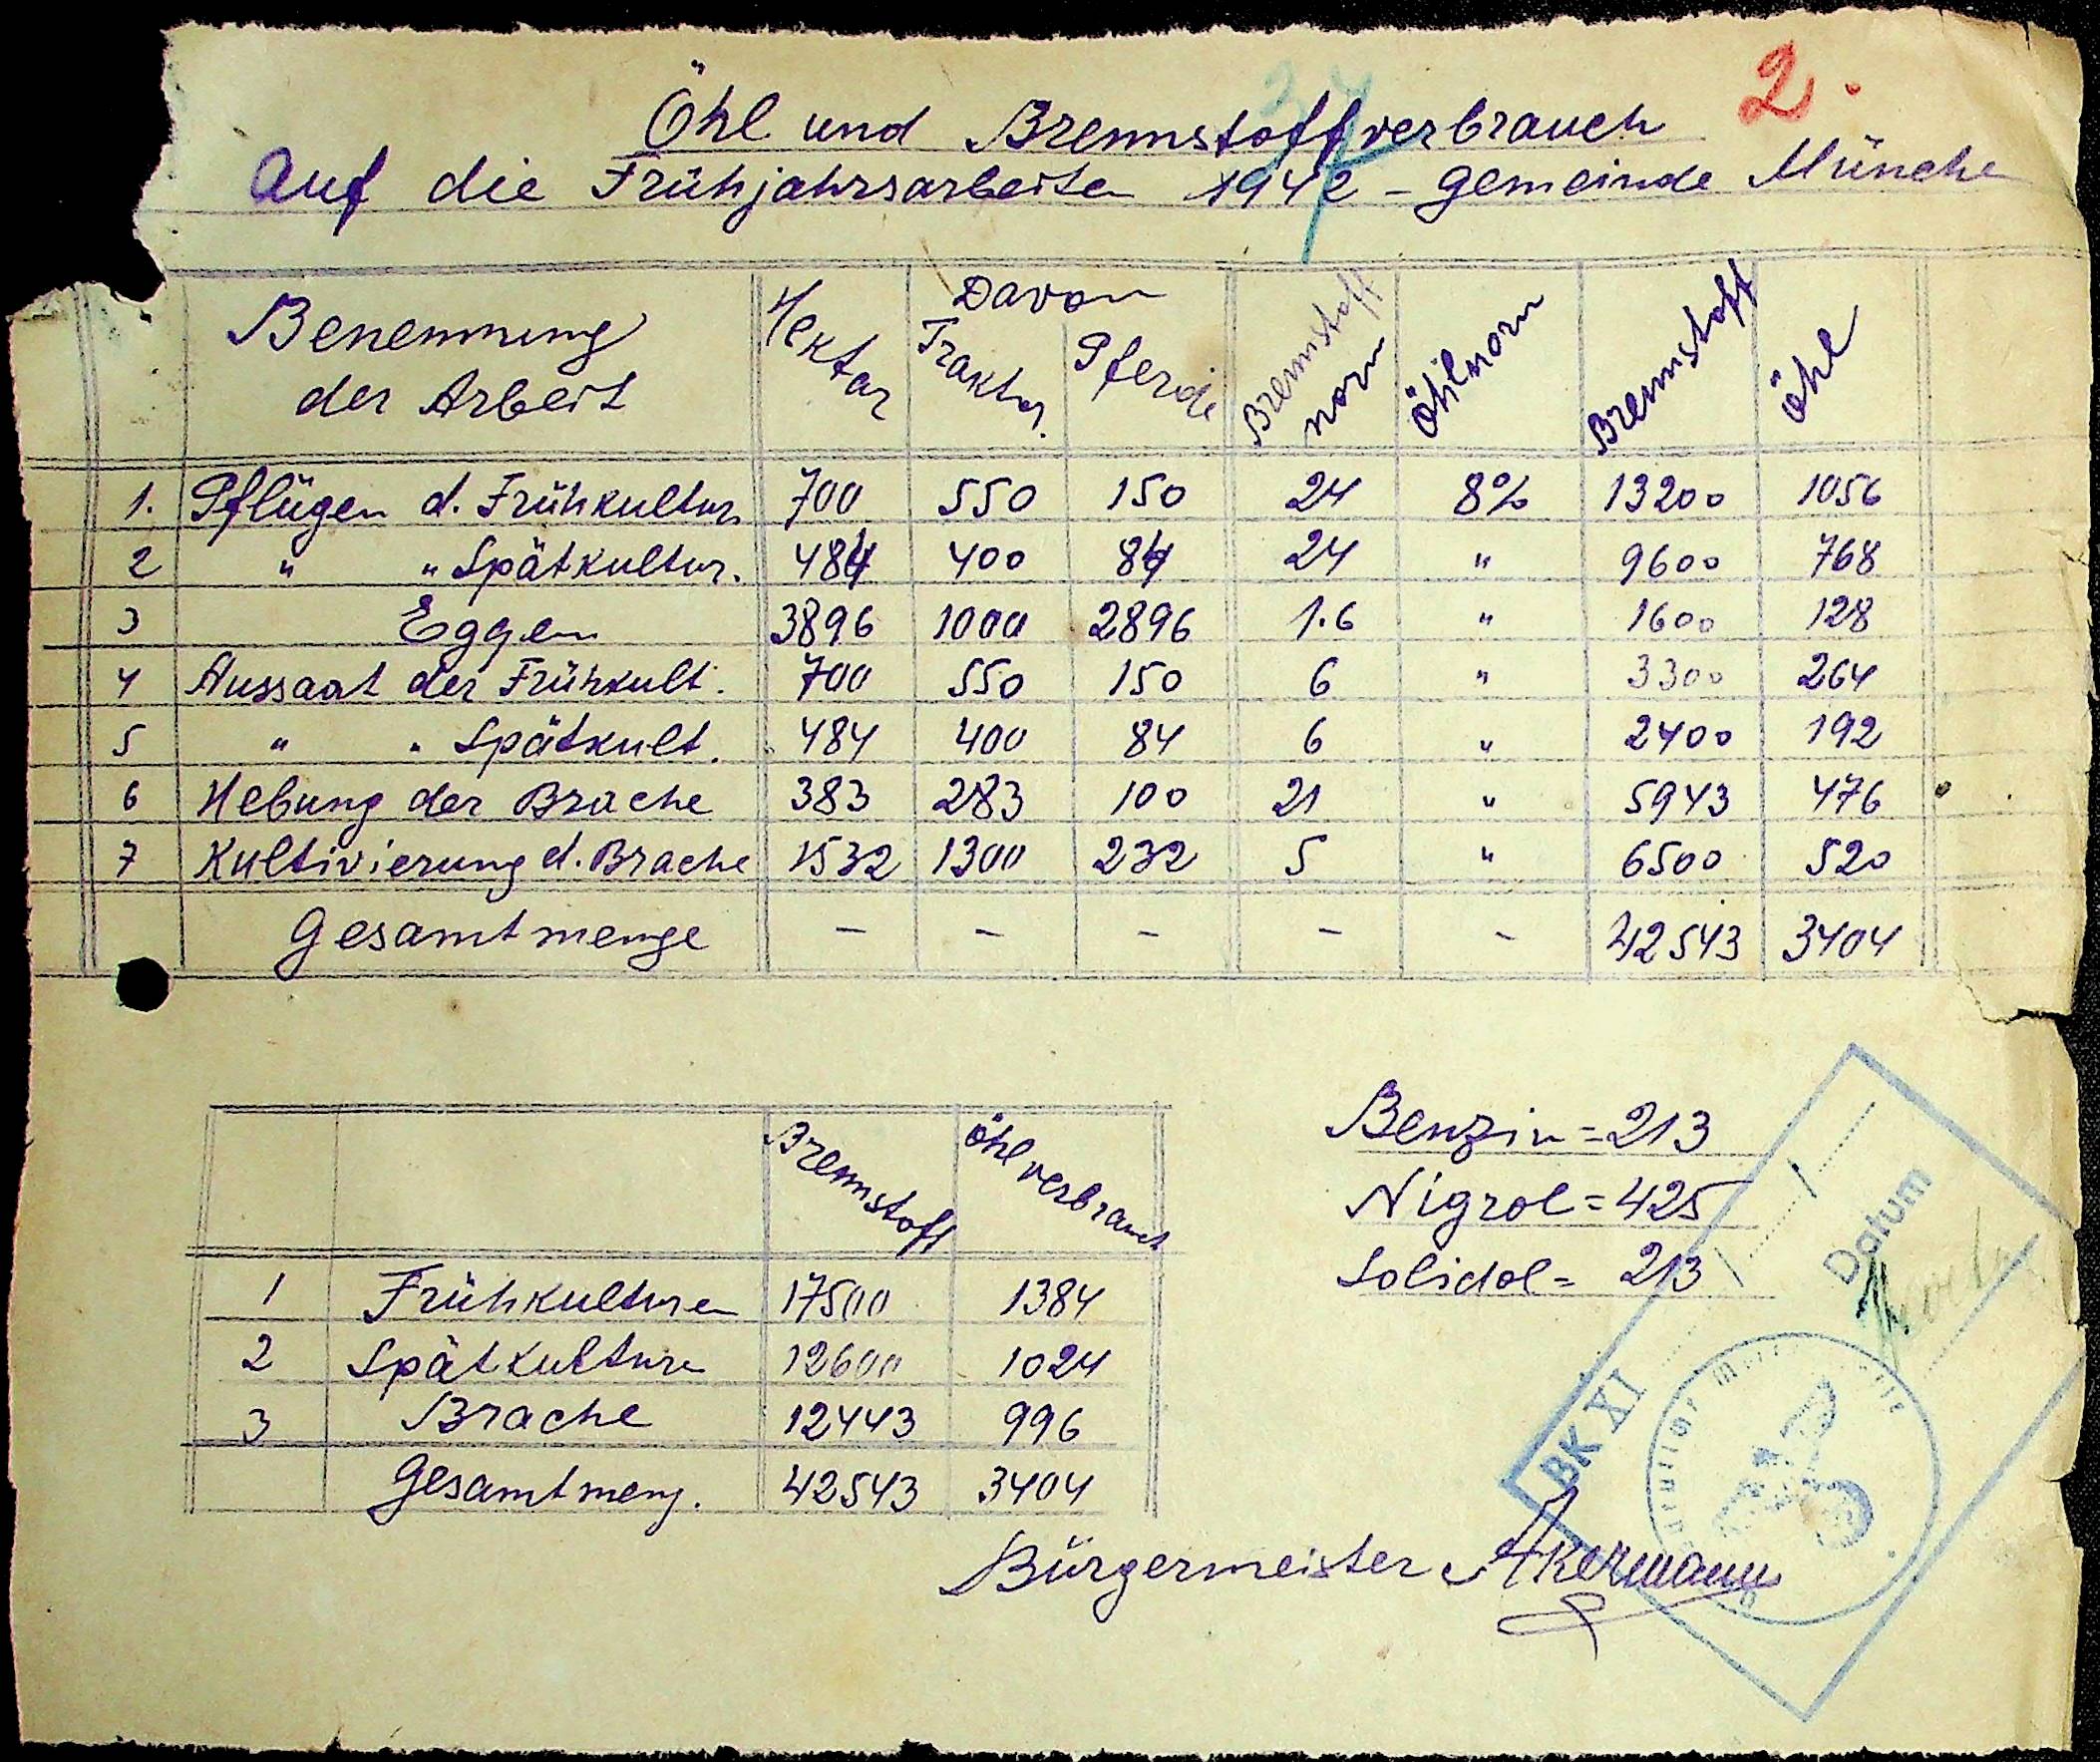 2.
Öhl und Brennstoffverbrauch
Auf die Frühjahrsarbeiten 1942 - Gemeinde München
Benennung der Arbeit Hektar Davon Traktor. Pferde Brennstoff norm Öhlnorm Brennstoff Öhl
1. Pflügen d. Frühkultur 700 550 150 24 8% 13200 1056
2 " " Spätkultur. 484 400 84 24 " 9600 768
3 Eggen 3896 1000 2896 1.6 " 1600 128
4 Aussaat der Frühkult. 700 550 150 6 " 3300 264
5 " " Spätkult. 484 400 84 6 " 2400 192
6 Hebung der Brache 383 283 100 21 " 5943 476
7 Kultivierung d. Brache 1532 1300 232 5 " 6500 520
Gesamtmenge - - - - - 42543 3404
Brennstoff Öhlverbrauch
1 Frühkulturen 17500 1384
2 Spätkulturen 12600 1024
3 Brache 12443 996
Gesamtmeng. 42543 3404
Benzin = 213
Nigrol = 425
Solidol = 213
Datum
BK XI
Bürgermeister Akermann